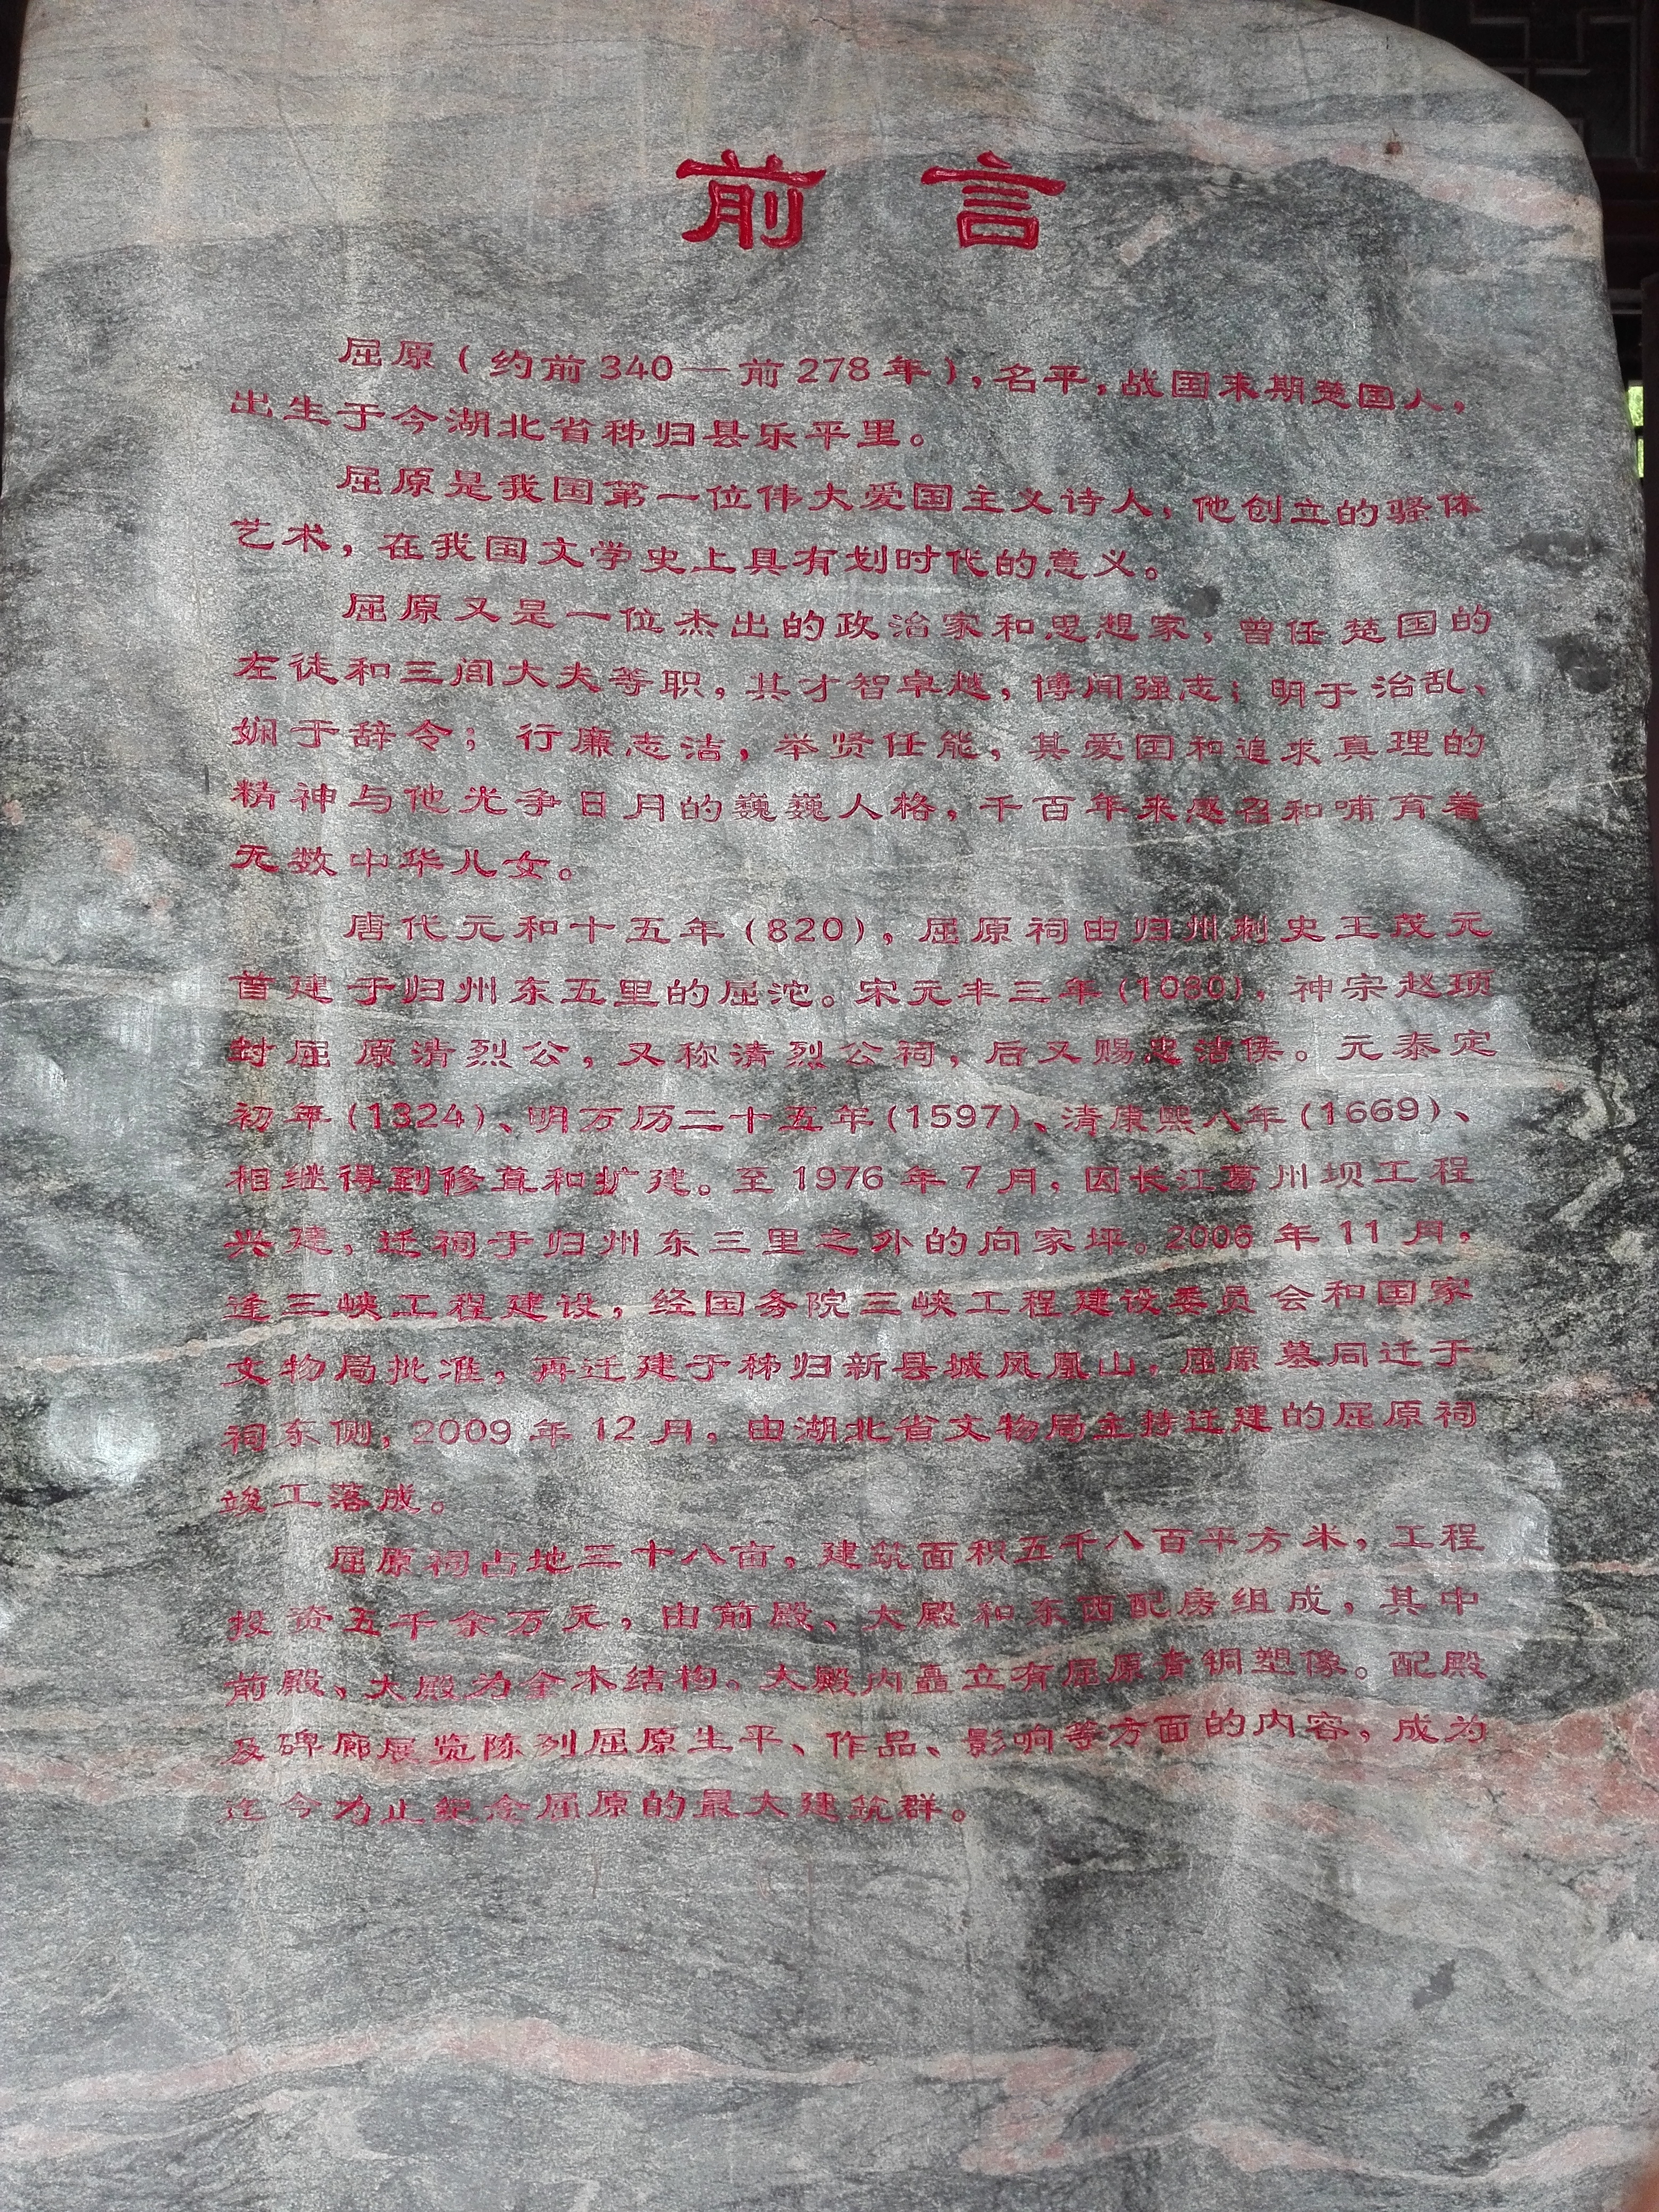 前言
屈原（约前340—前278年），名平，战国末期楚国人，
出生于今湖北省秭归县乐平里。
屈原是我国第一位伟大爱国主义诗人，他创立的骚体
艺术，在我国文学史上具有划时代的意义。
屈原又是一位杰出的政治家和思想家，曾任楚国的
左徒和三闾大夫等职，其才智卓越，博闻强志；明于治乱、
娴于辞令；行廉志洁，举贤任能，其爱国和追求真理的
精神与他光争日月的巍巍人格，千百年来感召和哺育着
无数中华儿女。
唐代元和十五年（820），屈原祠由归州刺史王茂元
首建于归州东五里的屈沱。宋元丰三年（1080），神宗赵顼
封屈原清烈公，又称清烈公祠，后又赐忠洁侯。元泰定
初年（1324）、明万历二十五年（1597）、清康熙八年（1669）、
相继得到修葺和扩建。至1976年7月，因长江葛州坝工程
兴建，迁祠于归州东三里之外的向家坪。2006年11月，
逢三峡工程建设，经国务院三峡工程建设委员会和国家
文物局批准，再迁建于秭归新县城凤凰山，屈原墓同迁于
祠东侧，2009年12月，由湖北省文物局主持迁建的屈原祠
竣工落成。
屈原祠占地三十八亩，建筑面积五千八百平方米，工程
投资五千余万元，由前殿、大殿和东西配房组成，其中
前殿、大殿为全木结构。大殿内矗立有屈原青铜塑像。配殿
及碑廊展览陈列屈原生平、作品、影响等方面的内容，成为
迄今为止纪念屈原的最大建筑群。